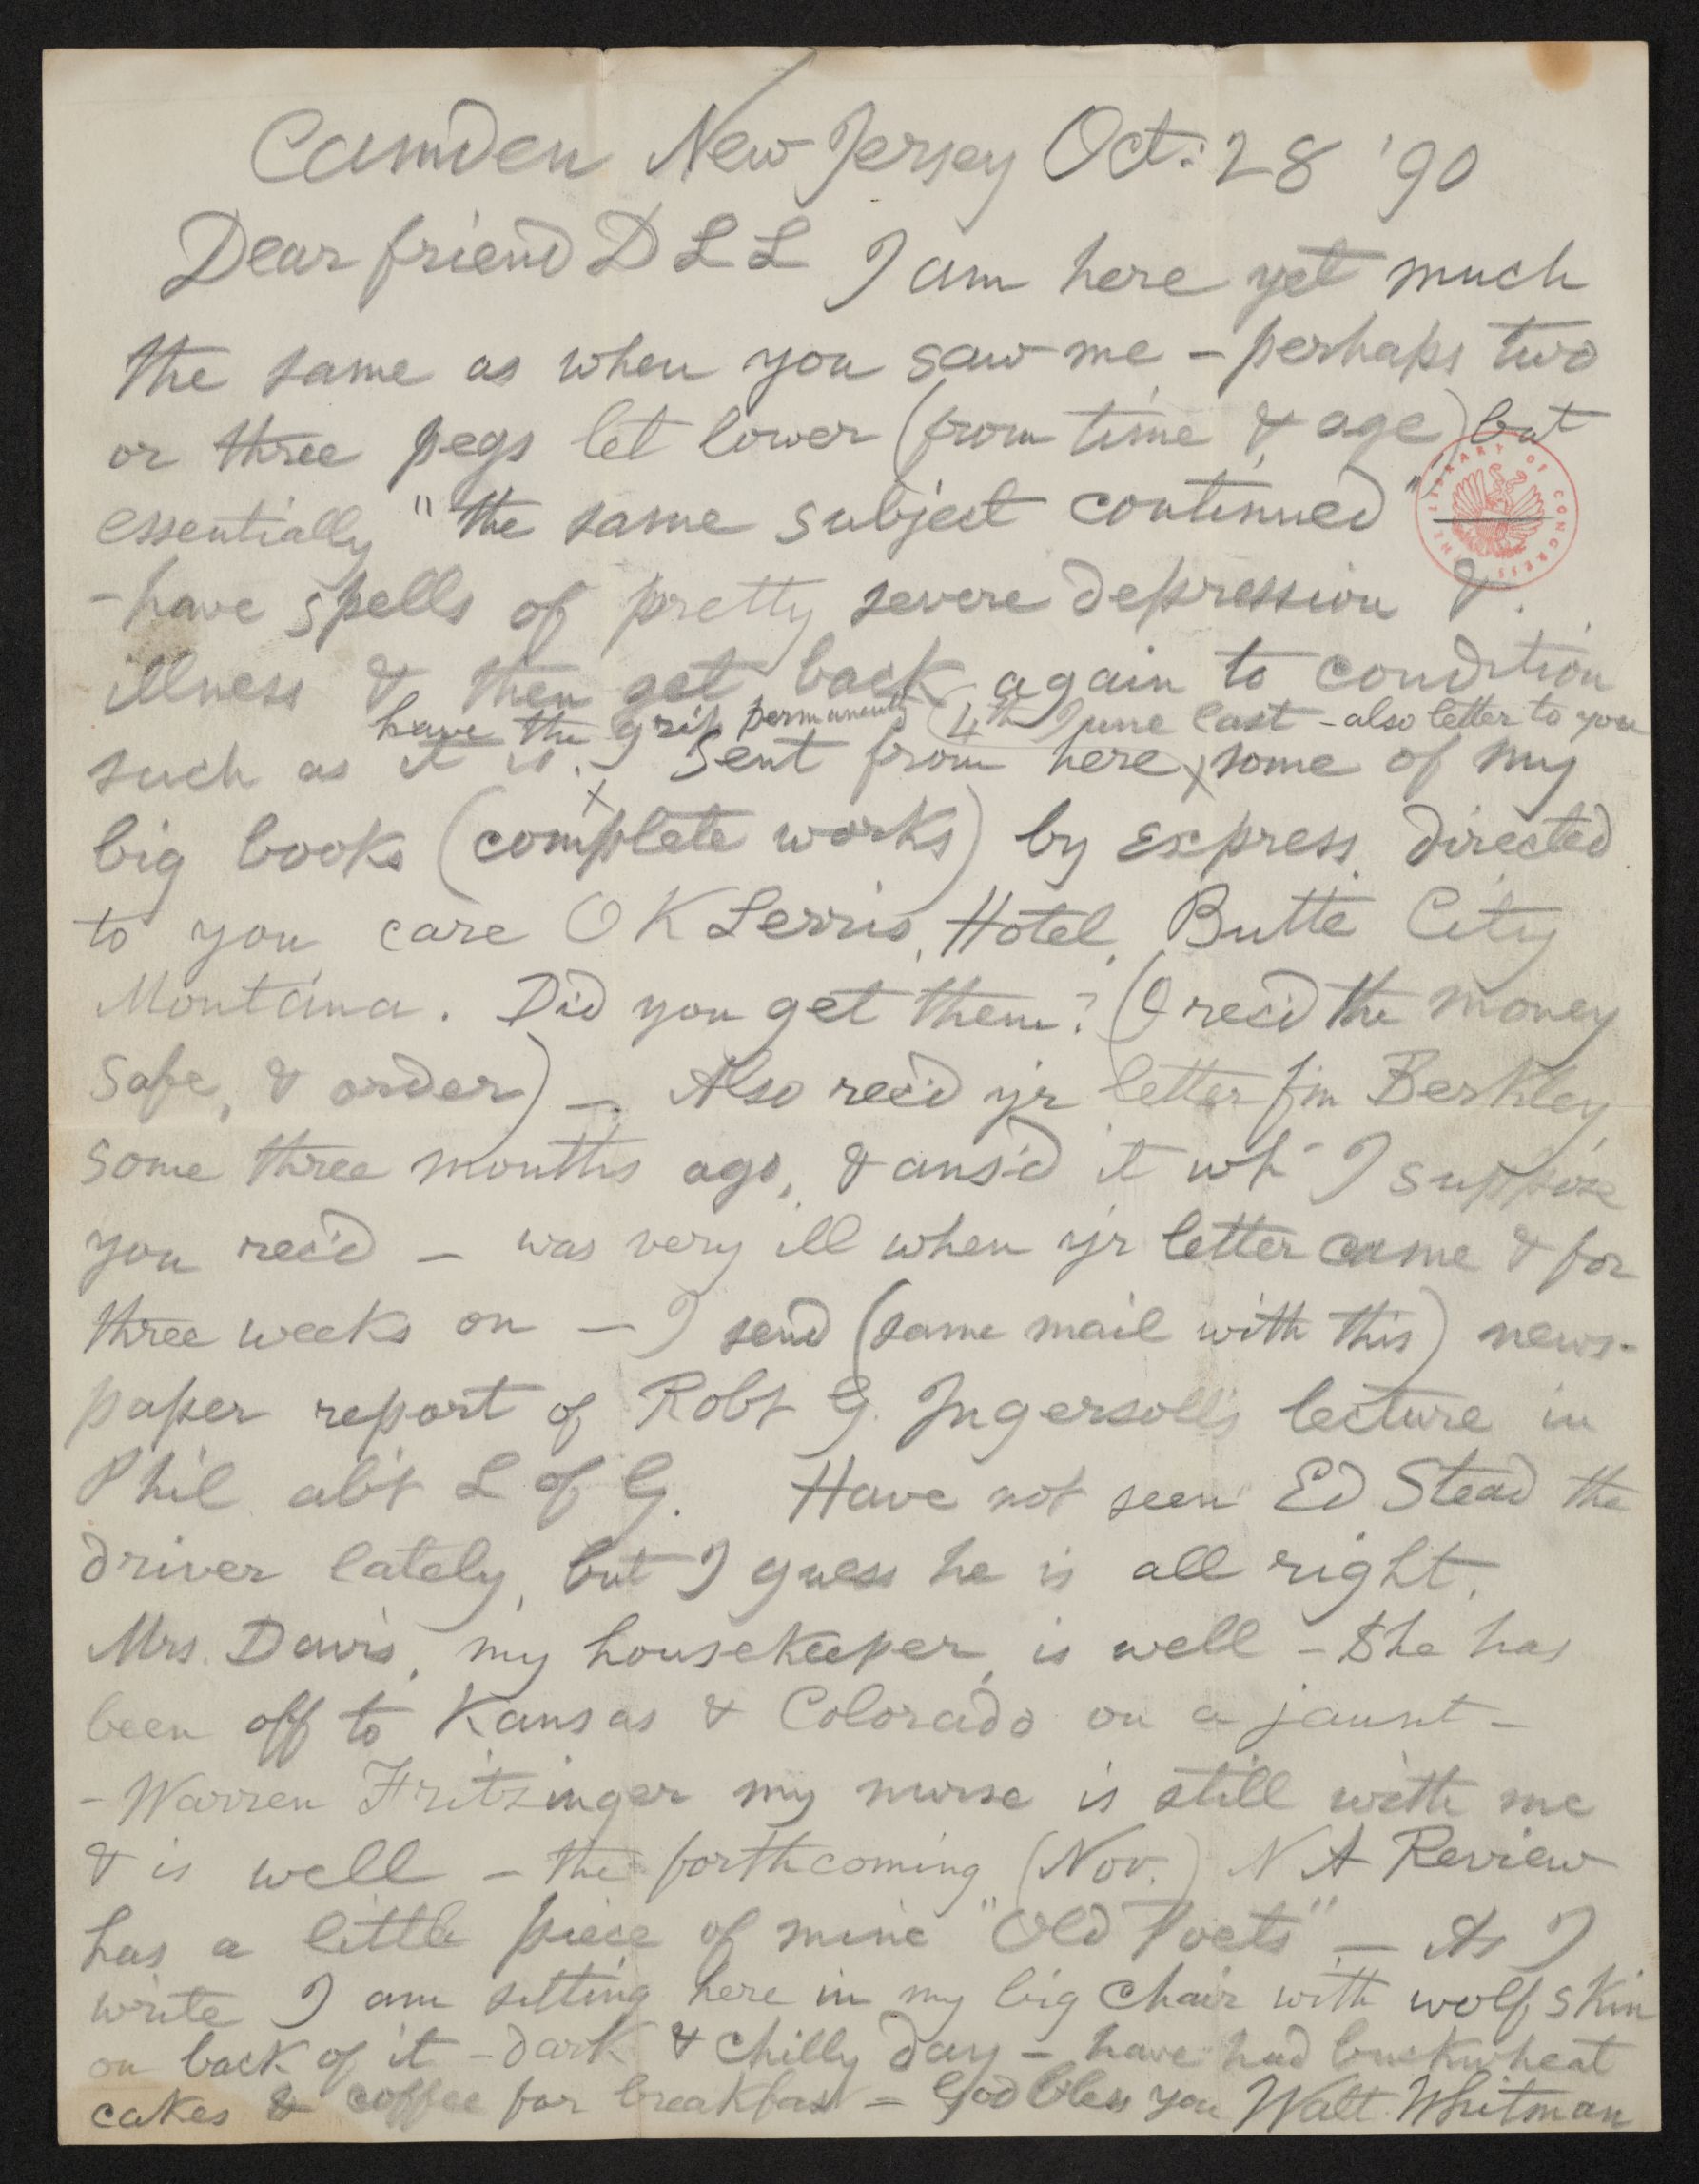 Camden New Jersey Oct: 28 '90
Dear friend D L L I am here yet much
the same as when you saw me – perhaps two
or three pegs let lower (from time & age) but
essentially "the same subject continued"
– have spells of pretty severe depression &
illness & then get back again to condition
have the grip permanently (4th June last – also letter to you
such as it is. I sent from here, some of my
big books (complete works) by express directed
to you care O K Lerris, Hotel, Butte City
Montana. Did you get them? (I rec'd the money
safe, & order) – Also rec'd y'r letter f'm Berkley
some three months ago, & ans'd it wh' I suppose
you rec'd – was very ill when y'r letter came & for
three weeks on – I send (same mail with this) news-
paper report of Robt G. Ingersoll's lecture in
Phil ab't L of G. Have not seen Ed Stead the
driver lately, but I guess he is all right.
Mrs. Davis, my housekeeper, is well – She has
been off to Kansas & Colorado on a jaunt –
– Warren Fritzinger my nurse is still with me
& is well – the forthcoming (Nov.) N A Review
has a little piece of mine "Old Poets" – As I
write I am sitting here in my big chair with wolf skin
on back of it – dark & chilly day – have had buckwheat
cakes & coffee for breakfast – God bless you Walt Whitman
THE LIBRARY OF CONGRESS